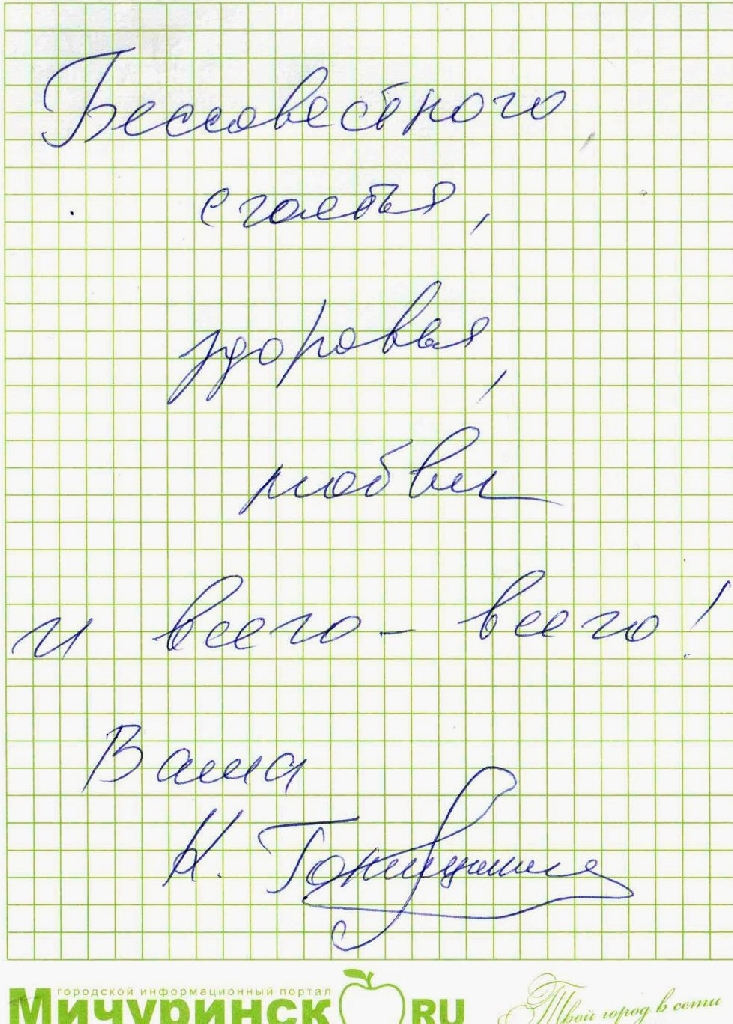 Бессовестного
счастья,
здоровья,
любви
и всего-всего!
Ваша
городской информационный портал
Мичуринск RU
Твой город в сети